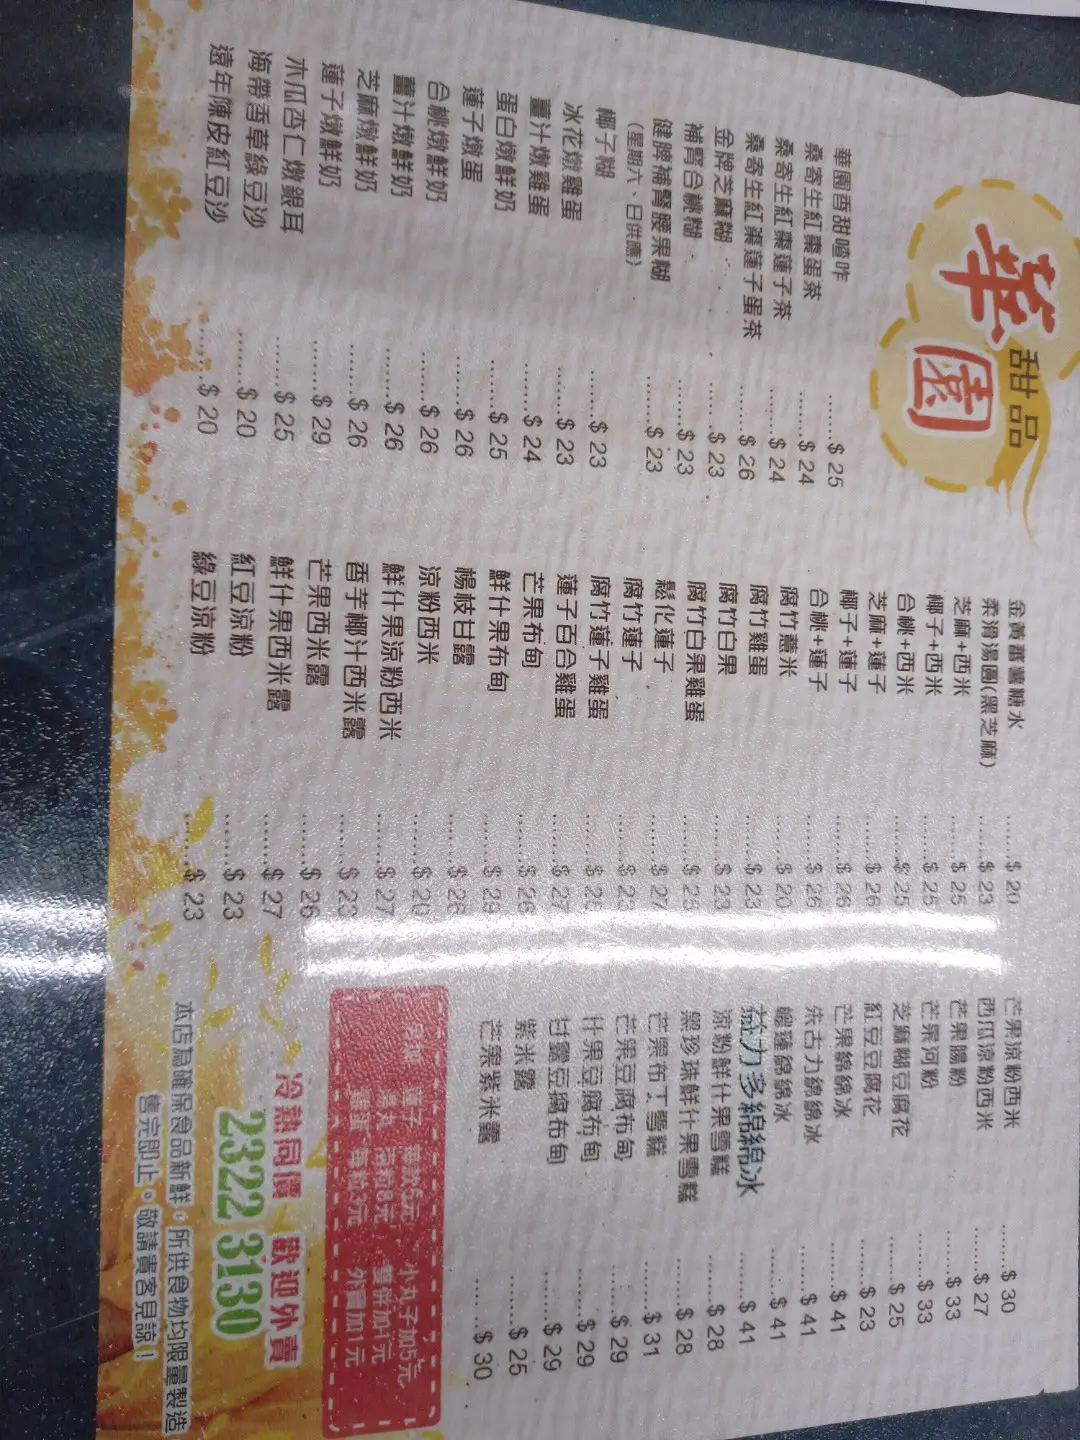 華園
甜品
華園香甜喳咋………$ 25
桑寄生紅棗蛋茶………$ 24
桑寄生紅棗蓮子茶………$ 24
桑寄生紅棗蓮子蛋茶………$ 26
金牌芝麻糊………$ 23
補腎合桃糊………$ 23
健脾補腎腰果糊………$ 23
(星期六、日供應)
椰子糊………$ 23
冰花燉雞蛋………$ 23
薑汁燉雞蛋………$ 24
蛋白燉鮮奶………$ 25
蓮子燉蛋………$ 26
合桃燉鮮奶………$ 26
薑汁燉鮮奶………$ 26
芝麻燉鮮奶………$ 26
蓮子燉鮮奶………$ 29
木瓜杏仁燉銀耳………$ 25
海帶香草綠豆沙………$ 20
遠年陳皮紅豆沙………$ 20
金黃蕃薯糖水………$ 20
柔滑湯圓(黑芝麻)………$ 23
芝麻+西米………$ 25
椰子+西米………$ 25
合桃+西米………$ 25
芝麻+蓮子………$ 26
椰子+蓮子………$ 26
合桃+蓮子………$ 26
腐竹薏米………$ 20
腐竹雞蛋………$ 23
腐竹白果………$ 23
腐竹白果雞蛋………$ 25
鬆化蓮子………$ 27
腐竹蓮子………$ 23
腐竹蓮子雞蛋………$ 25
蓮子百合雞蛋………$ 27
芒果布甸………$ 26
鮮什果布甸………$ 29
楊枝甘露………$ 28
涼粉西米………$ 20
鮮什果涼粉西米………$ 27
香芋椰汁西米露………$ 23
芒果西米露………$ 26
鮮什果西米露………$ 27
紅豆涼粉………$ 23
綠豆涼粉………$ 23
芒果涼粉西米………$ 30
西瓜涼粉西米………$ 27
芒果腸粉………$ 33
芒果河粉………$ 33
芝麻糊豆腐花………$ 25
紅豆豆腐花………$ 23
芒果綿綿冰………$ 41
朱古力綿綿冰………$ 41
榴槤綿綿冰………$ 41
益力多綿綿冰………$ 41
涼粉鮮什果雪糕………$ 28
黑珍珠鮮什果雪糕………$ 28
芒果布丁雪糕………$ 31
芒果豆腐布甸………$ 29
什果豆腐布甸………$ 29
甘露豆腐布甸………$ 29
紫米露………$ 25
芒果紫米露………$ 30
蓮子 每款6元 小丸子加5元
湯丸 每粒8元 雙併加1元
雞蛋 每粒3元 外賣加1元
冷熱同價 歡迎外賣
2322 3130
本店為確保食品新鮮，所供食物均限量製造
售完即止。敬請貴客見諒！